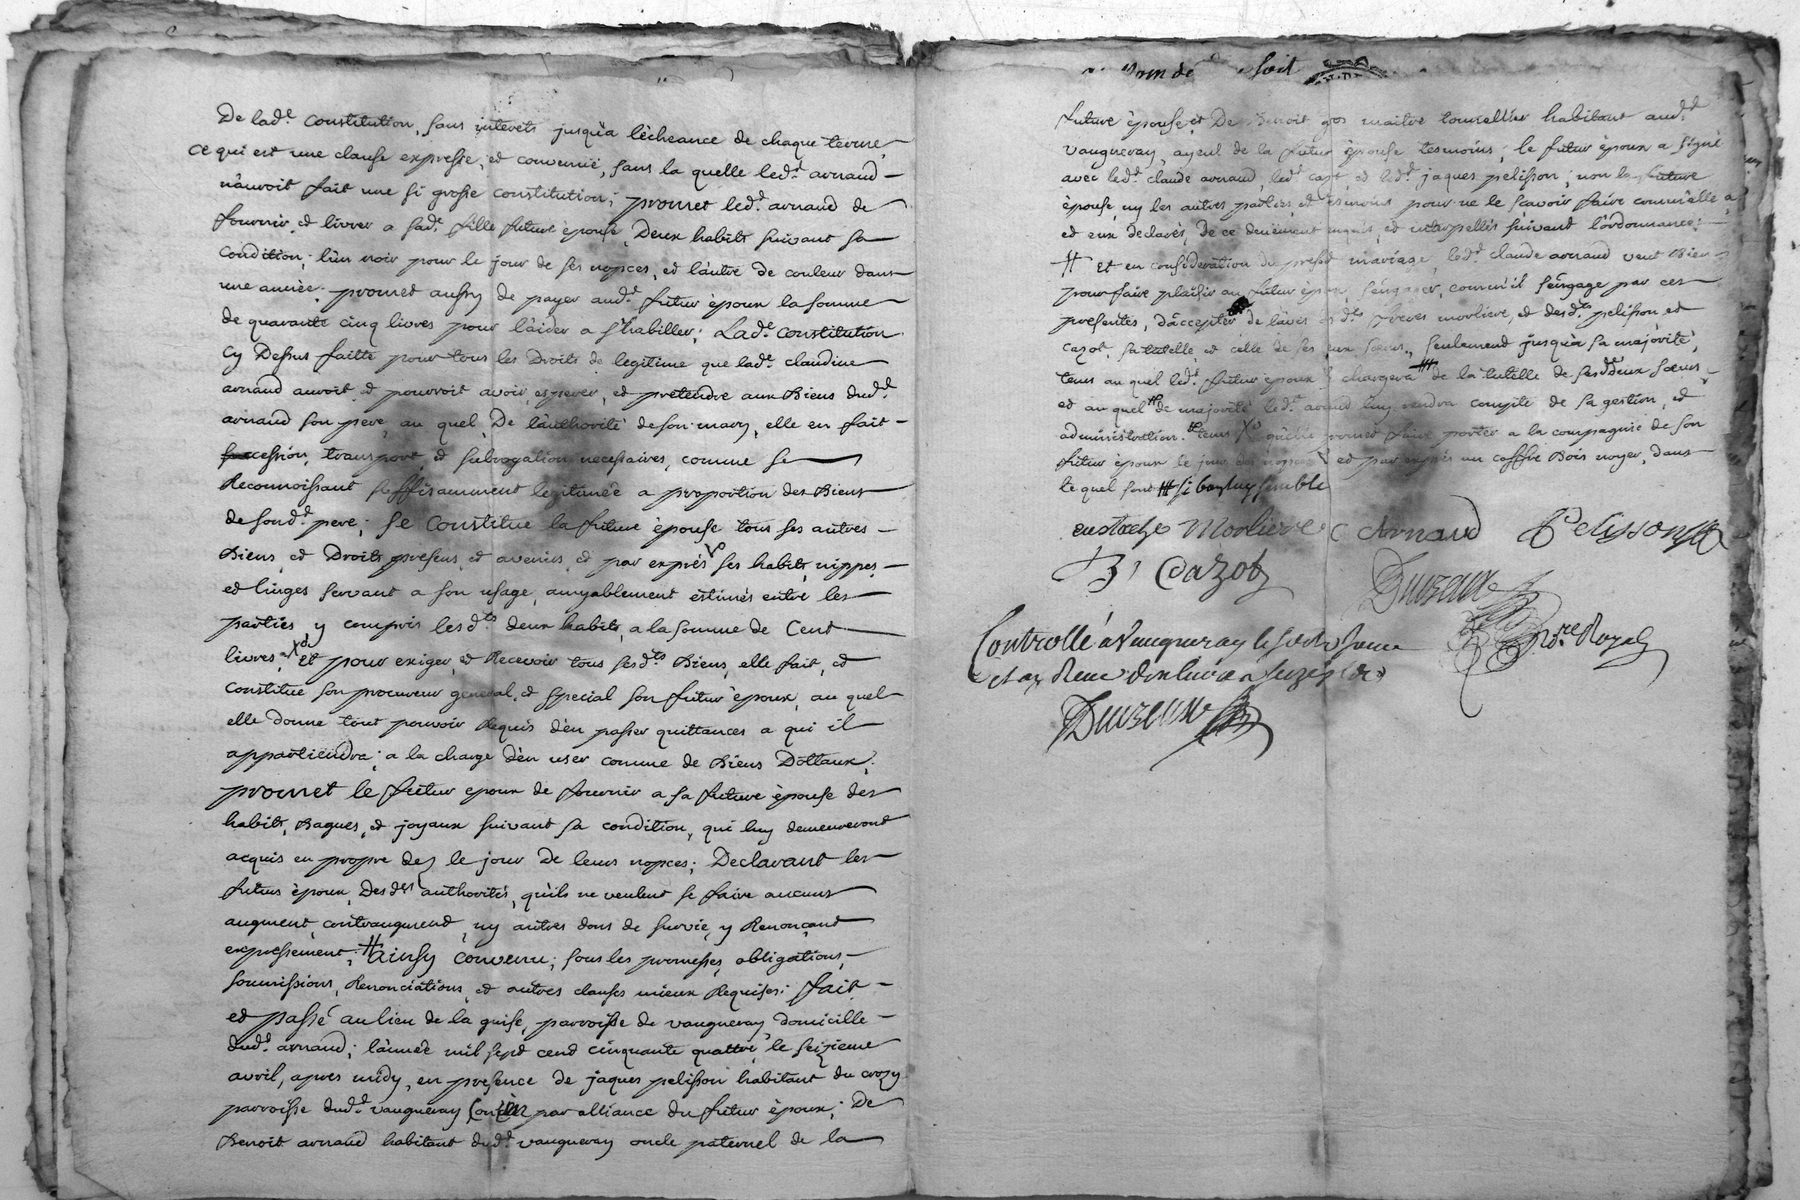 De lad.e Constitution, sans interets jusqu'a l'écheance de chaque terme,
Ce qui est une clause expresse, et convenuë, sans la quelle led.t arnaud
n'auroit fait une si grosse constitution; promet led.t arnaud de
fournir et livrer a sad.e fille future épouse, Deux habits suivant sa
Condition, l'un noir pour le jour de ses nopces, et l'autre de couleur dans
une année; promet aussy de payer aud.t futur époux la somme
de quarante cinq livres pour l'aider a s'habiller; Lad.e Constitution
Cy Dessus faitte pour tous les Droits de legitime que lad.e claudine
arnaud auroit et pourroit avoir, esperer, et pretendre aux Biens dud.t
arnaud son pere, au quel, De l'authorité de son mary, elle en fait
cession, transport, et subrogation necessaires, comme se
Reconnoissant suffisamment legitimée a proportion des Biens
de sond.t pere; Se Constitue la future épouse tous ses autres
Biens, et Droits presens, et avenirs, et par exprés ses habits, nippes,
et linges servant a son usage, amyablement estimés entre les
parties y compris lesd.ts deux habits, a la somme de Cent
livres, Et pour exiger, et Recevoir tous sesd.ts Biens, elle fait, et
constitue son procureur general, et special son futur époux, au quel
elle donne tout pouvoir Requis d'en passer quittances a qui il
appartiendra; a la charge d'en user comme de Biens Dottaux;
promet le futur epoux de fournir a sa future épouse des
habits, Bagues, et joyaux suivant sa condition, qui luy demeureront
acquis en propre dez le jour de leurs nopces; Declarant les
futurs époux, Desd.es authorités, qu'ils ne veulent se faire aucuns
augment, contraugment, ny autres dons de survie, y Renonçant
expressement; # ainsy convenu; sous les promesses, obligations,
soumissions, Renonciations, et autres clauses mieux Requises; fait
et passé au lieu de la guise, parroisse de vaugneray, domicille
dud.t arnaud; l'année mil sept cent cinquante quattre, le seizieme
avril, apres midy, en presence de jaques pelisson habitant du crozy
parroisse dud.t vaugneray par alliance du futur époux; De
Benoit arnaud habitant dud.t vaugneray oncle paternel de la
soit
future épouse, et De Benoit gros maitre tonnellier habitant aud.t
vaugneray, ayeul de la future épouse tesmoins; le futur époux a signé
avec led.t claude arnaud, led.t cazot, et led.t jaques pelisson; non la future
épouse, ny les autres parties, et tesmoins pour ne le sçavoir faire comm'elle,
et eux declarés, de ce deuëment enquis, et interpellés suivant l'ordonnance;
# Et en consideration du present mariage, led.t claude arnaud veut Bien
pour faire plaisir au futur époux, s'engager, comm'il s'engage par ces
presentes, d'accepter de l'avis desd.ts freres morliere, et desd.ts pelisson et
cazot, sa tutelle, et celle de ses deux sœurs, seulement jusqu'a sa majorité,
tems au quel led.t futur époux se chargera # de la tutelle de sesd.tes deux sœurs,
et au quel de majorité led.t arnaud luy rendra compte de sa gestion, et
administration. tems qu'elle promet faire porter a la compagnie de son
futur époux le jour des nopces et par exprés un coffre Bois noyer, dans
le quel sont # si bon luy semble
eustache Morliere C Arnaud Pelisson
B. Cazot
Duvzeux
Controllé a Vaugneray le
Duvzeux